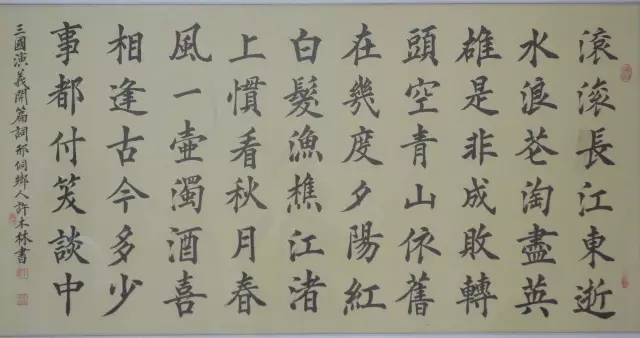 滾滾長江東逝
水浪花淘盡英
雄是非成敗轉
頭空青山依舊
在幾度夕陽紅
白髮漁樵江渚
上慣看秋月春
風一壺濁酒喜
相逢古今多少
事都付笑談中
三國演義開篇詞邢侗鄉人許木林書